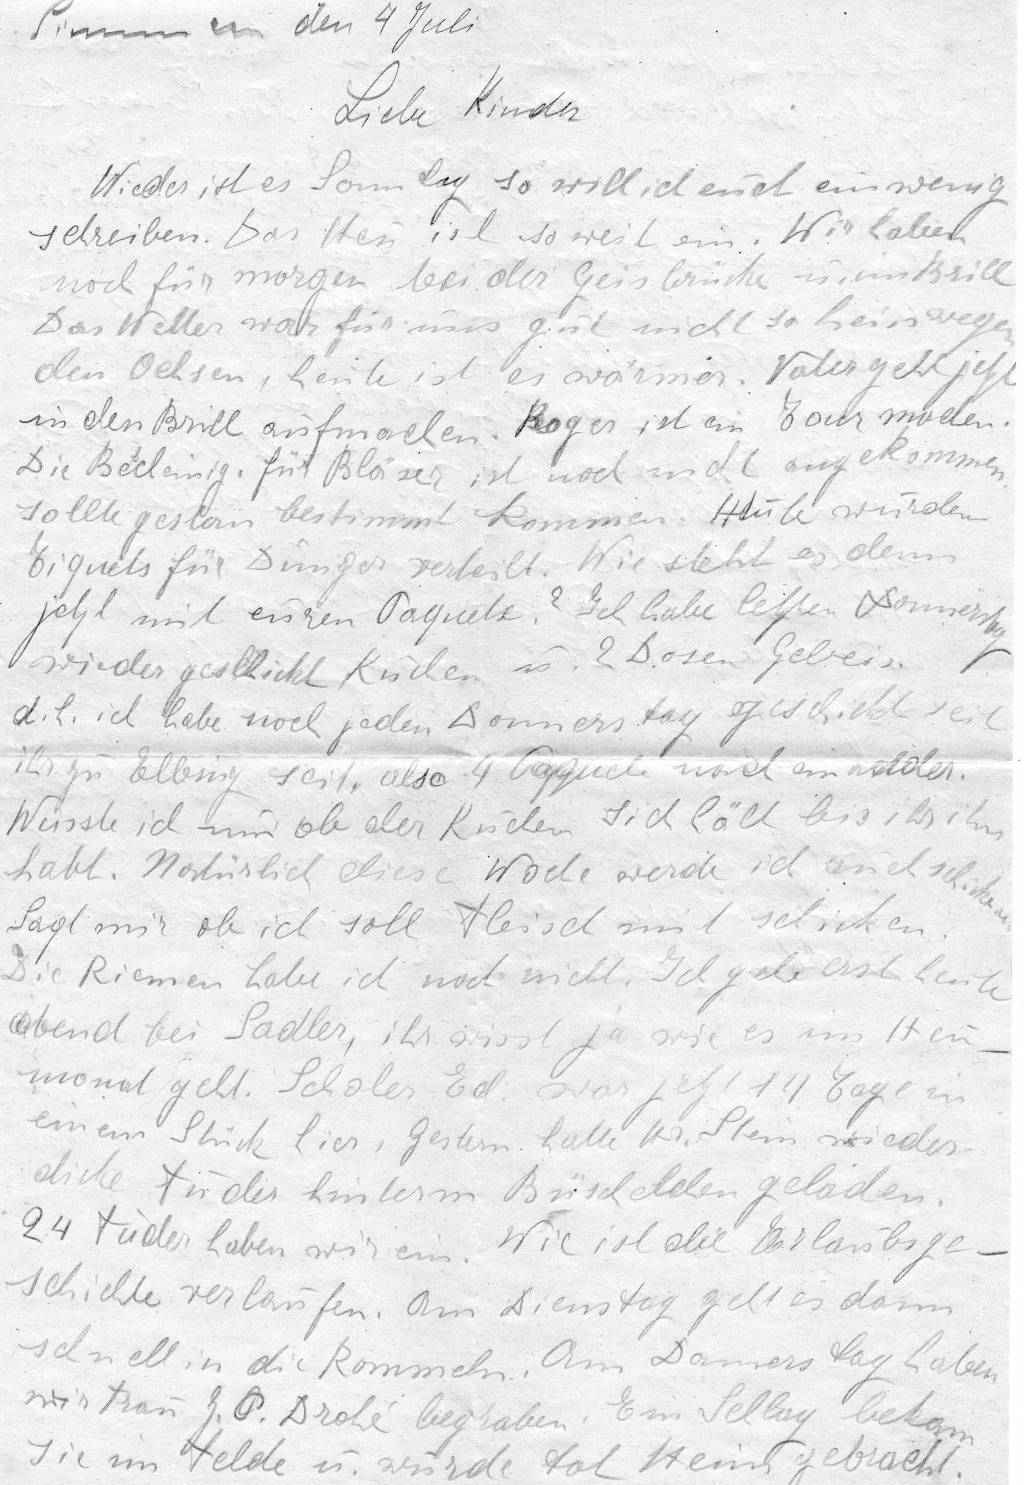 den 4 Juli
Liebe Kinder
Wieder ist es Sonntag so will ich euch ein wenig
schreiben. Das Heu ist so weit ein. Wir haben
noch für morgen bei der Geisbrücke u. im Brill
Das Wetter war für uns gut nicht so heiss wegen
den Ochsen, heute ist es wärmer. Vater geht jetzt
in den Brill aufmachen. Roger ist ein Tour machen.
Die Bescheinig. für Bläser ist noch nicht angekommen
sollte gestern bestimmt kommen. Heute wurden
Tiquets für Dünger verteilt. Wie steht es denn
jetzt mit euren Paquete.? Ich habe letzten Donnerstag
wieder geschickt Kuchen u. 2 Dosen
d.h. ich habe noch jeden Donnerstag geschickt seit
ihr zu Elbing seit, also 4 Paquete nach einander.
Wüsste ich nur ob der Kuchen sich hält bis ihr ihn
habt. Natürlich diese Woche werde ich auch schicken.
Sagt mir ob ich soll Fleisch mit schicken.
Die Riemen habe ich noch nicht. Ich gehe erst heute
abend bei Sadler, ihr wisst ja wie es im Heu-
monat geht. Scholer Ed. war jetzt 14 Tage in
einem Stück hier, gestern hatte Hr. Stein wieder
dicke Fuder hinterm Büschelchen geladen.
24 Fuder haben wir ein. Wie ist die Urlaubsge-
schichte verlaufen. Am Dienstag geht es dann
schnell in die Rommeln. Am Donnerstag haben
wir Frau J. P. Drohé begraben. Ein Sellag bekam
sie im Felde u. wurde tot Heim gebracht.